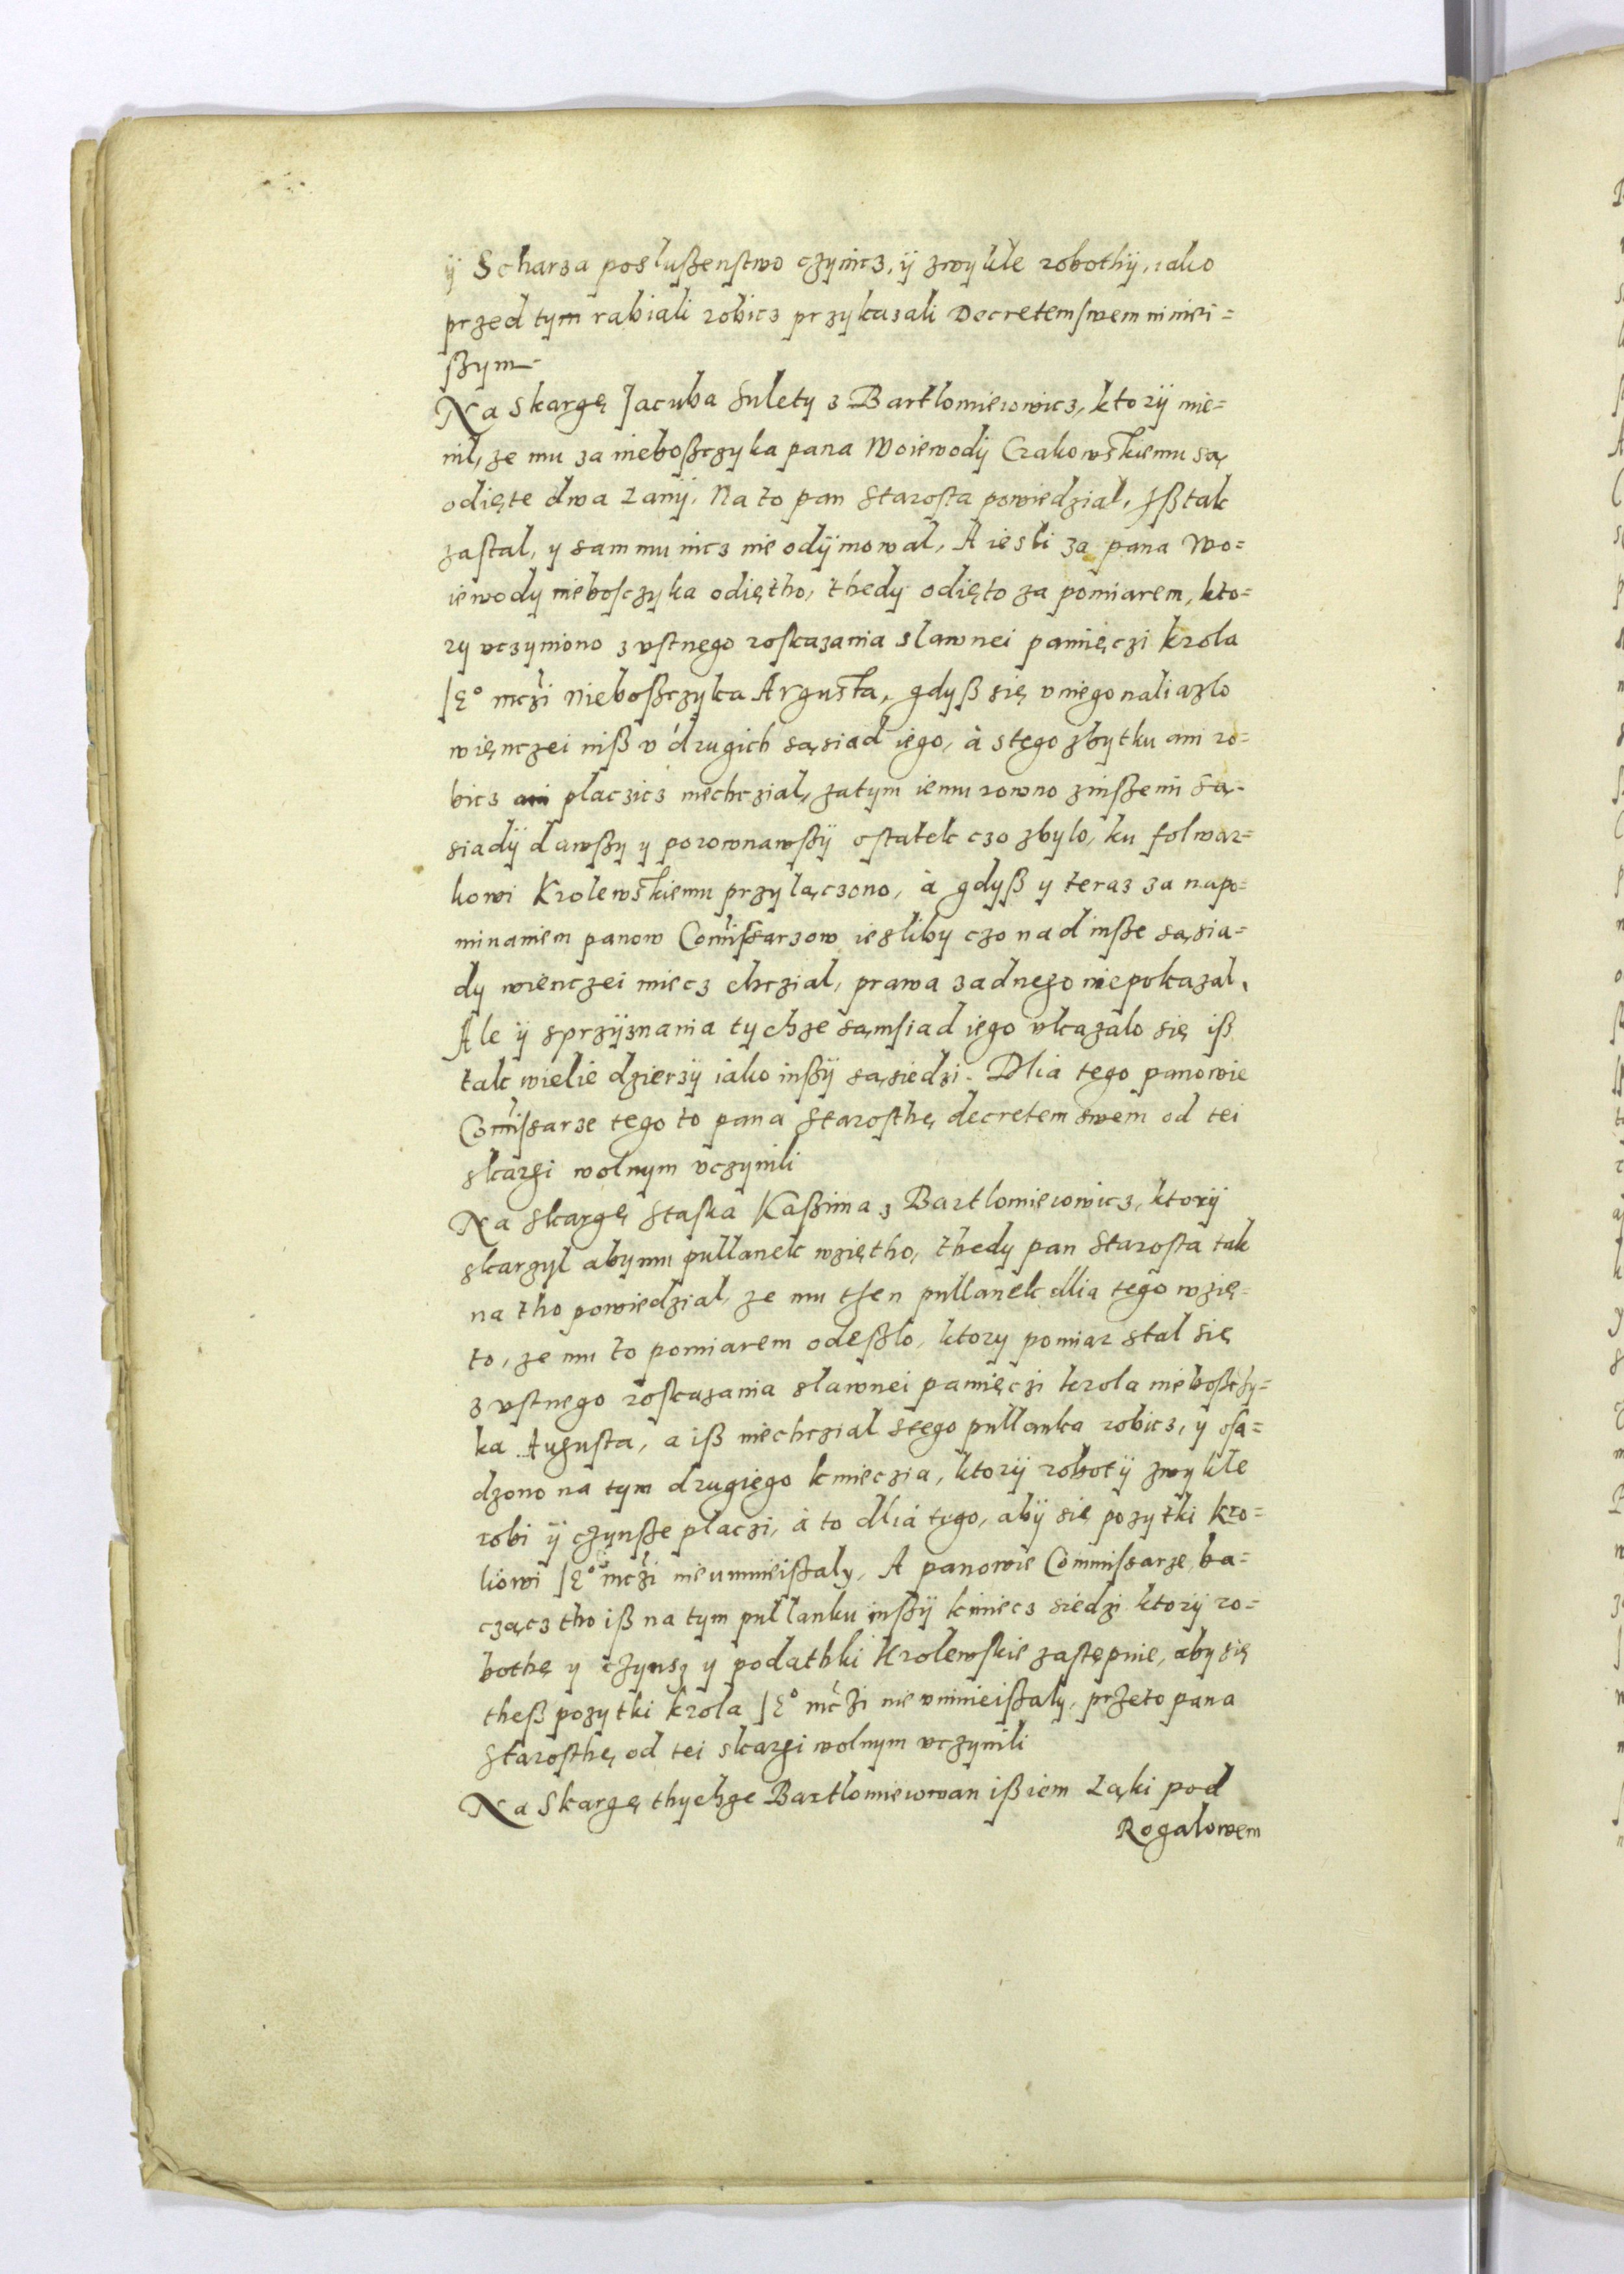 ÿ Scharza posłußenstwo czynicz, ÿ zwykłe robothÿ, iako
przed tym rabiali robicz przykazali Decretem swem niniei=
ßzym
Na Skargę Jacuba Sulety z Bartlomieiowicz, ktorÿ mie=
nil, ze mu za nieboßczyka pana Woiewodÿ Crakowskiemu są
odięte dwa Lanÿ. Na to pan Starosta powiedzial, Jß tak
zastal, y sam mu nicz nie odÿmowal, A iesli za pana Wo=
iewody nieboſczyka odiętho, thedy odięto za pomiarem, kto=
ry vczyniono z vstnego roskazania sławnei pamięczi krola
Je° mczi Nieboßczyka Augusta, gdyß się v niego naliazlo
więnczei niß v drugich sąsiad iego, à stego zbytku ani ro=
bicz ani placzicz niechczial, zatym iemu rowno z inßemi są=
siadÿ dawßy y porownawßÿ ostatek czo zbylo, ku folwar=
kowi Krolewskiemu przyłączono, à gdyß y teraz za napo=
minaniem panow Comißarzow iesliby czo nad inße sąsia=
dy wienczei miecz chczial, prawa zadnego nie pokazal,
Ale ÿ sprzÿznania tychze sąmsiad iego vkazalo się iß
tak wielie dzierzÿ iako inßÿ sąsiedzi. Dlia tego panowie
Comißarze tego to pana Starosthę decretem swem od tei
skargi wolnym vczynili
Na skargę Staska Kaßima z Bartlomieiowicz, ktorÿ
skarzyl aby mu pullanek wziętho, thedy pan Starosta tak
na tho powiedzial, ze mu then pullanek dlia tego wzię=
to, ze mu to pomiarem odeßlo, ktory pomiar stal się
z vstnego roskazania sławnei pamięczi krola nieboßczy=
ka Augusta, a iß niechczial stego pullanka robicz, y osa=
dzono na tym drugiego kmieczia, ktorÿ robotÿ zwykłe
robi ÿ czynße placzi, à to dlia tego, abÿ się pozytki kro=
liowi Je° mczi nie vmnieißaly. A panowie Commissarze ba=
cząc tho iß na tym pullanku inßÿ kmiecz siedzi ktorÿ ro=
bothę y czynsz y podathki Krolewskie zastępuie, aby się
theß pozytki krola Je° mczi nie vmnieißaly, przeto pana
Starosthę od tei skargi wolnym vczynili
Na Skargę thychze Bartlomieiowian iß iem Łąki pod
Rogalowem